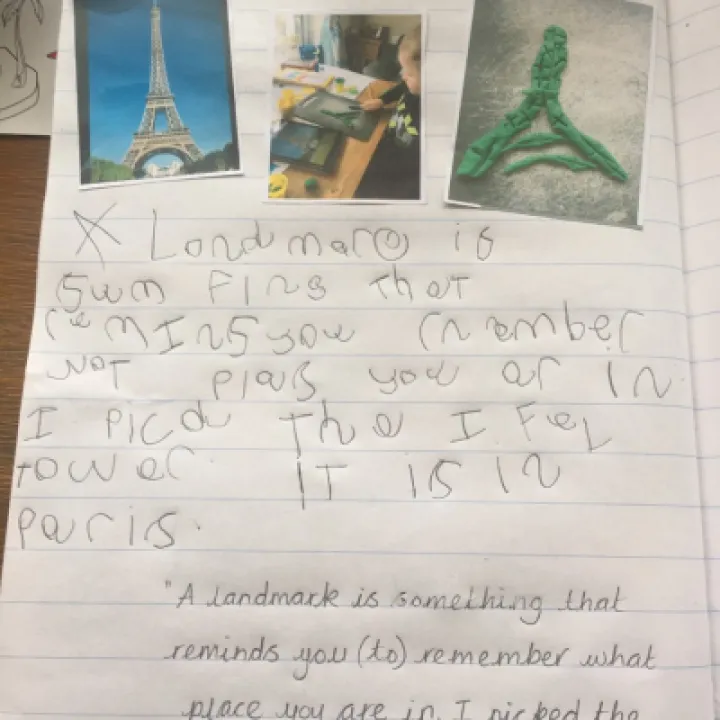 A Londmarc is
sum fing that
reminsyou rnember
wot plas you ar in
I picd the I fel
tower. IT is in
paris.
"A landmark is something that
reminds you (to) remember what
place you are in. I picked the